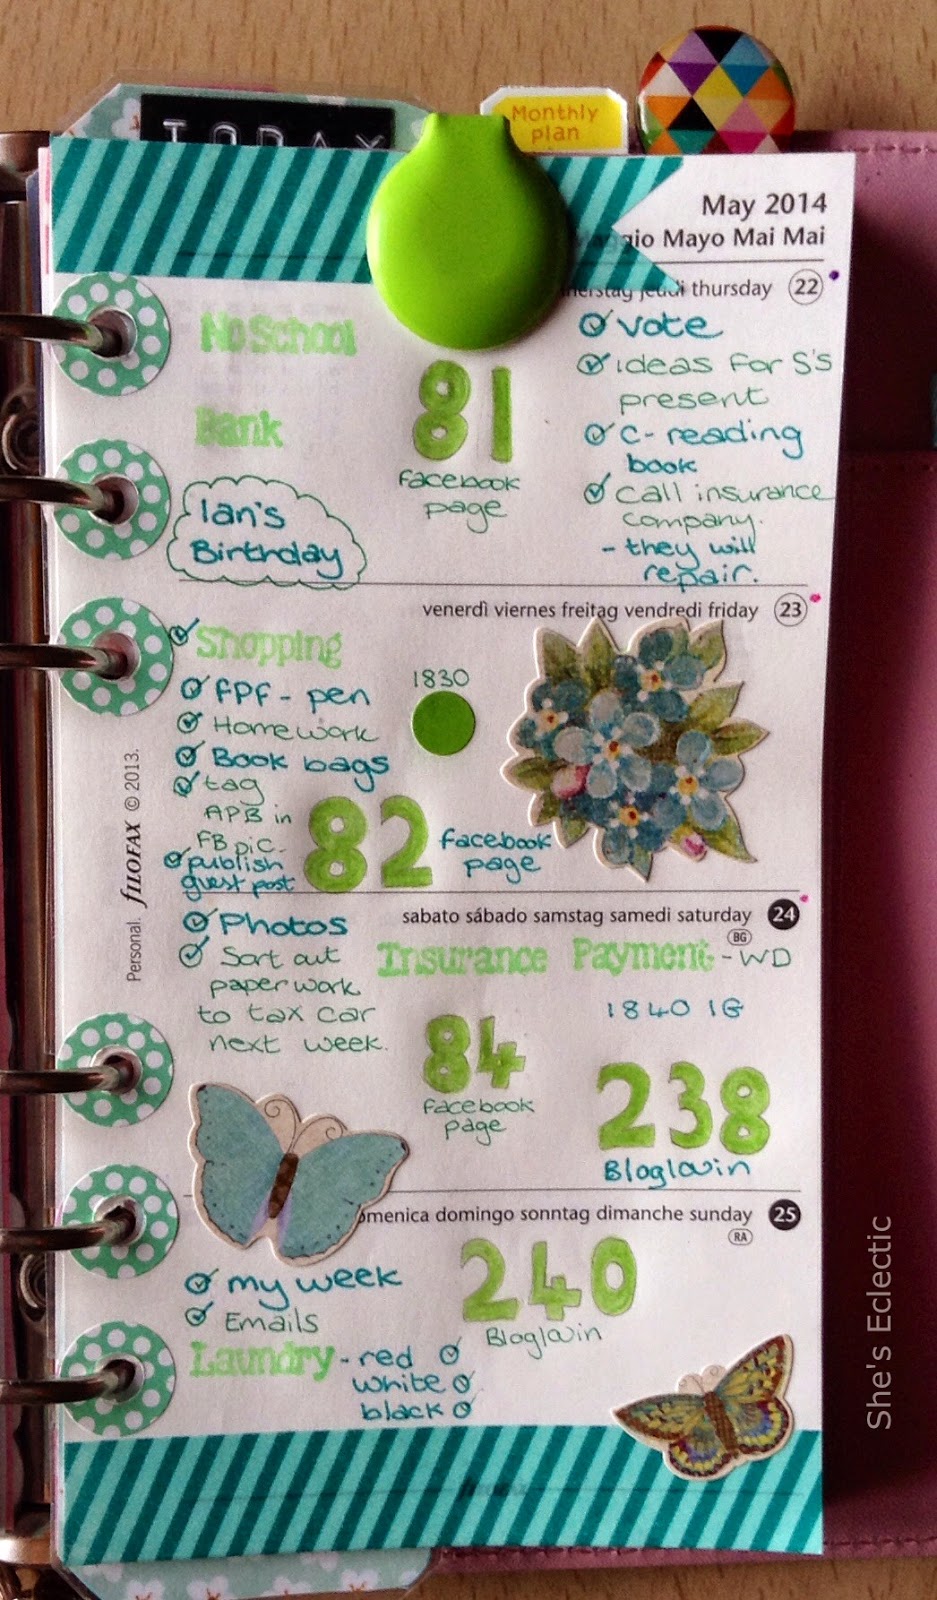 TODAY
Monthly
plan
May 2014
Mayo Mai Mai
jeudi thursday 22
No School
Bank
Ian's
Birthday
81
facebook
page
vote
ideas for S's
present
C- reading
book
call insurance
company.
- they will
repair.
venerdì viernes freitag vendredi friday 23
Shopping
FPF - pen
Homework
Book bags
tag
APB in
FB pic.
publish
guest post
1830
82
facebook
page
sabato sábado samstag samedi saturday 24
BG
Photos
Sort out
paperwork
to tax car
next week.
Insurance Payment - WD
1840 IG
84
facebook
page
238
Bloglovin
domingo sonntag dimanche sunday 25
RA
my week
Emails
Laundry - red
white
black
240
Bloglovin
Personal. fILOFAX © 2013.
She's Eclectic